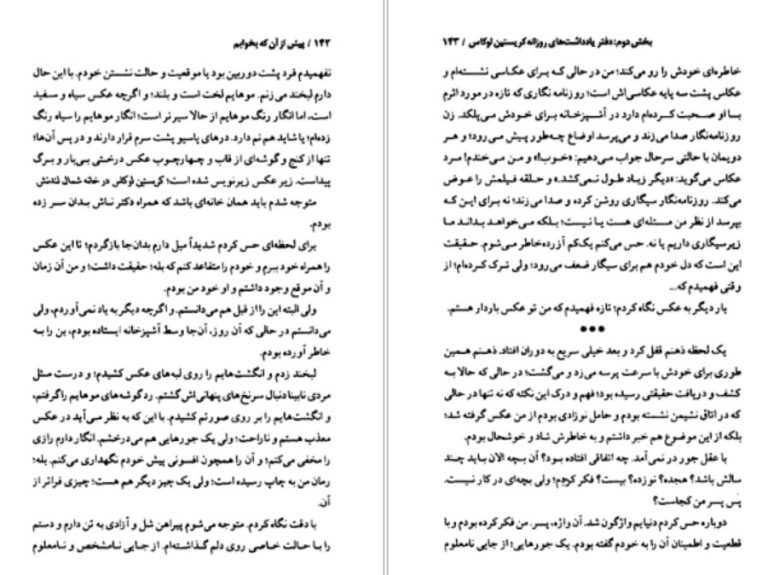 ۱۴۲ / پیش از آن که بخوابم
نفهمیدم فرد پشت دوربین بود یا موقعیت و حالت نشستن خودم. با این حال
دارم لبخند می‌زنم. موهایم لخت است و بلند؛ و اگرچه عکس سیاه و سفید
است، اما انگار رنگ موهایم از حالا سیرتر است؛ انگار موهایم را سیاه رنگ
زده‌ام؛ یا شاید هم نم دارد. درهای پاسیو پشت سرم قرار دارند و در پس آن‌ها؛
تنها از کنج و گوشه‌ای از قاب و چهارچوب عکس درختی بی‌بار و برگ
پیداست. زیر عکس زیرنویس شده است؛ کریستین لوکاس در خانه شمال لندنش
متوجه شدم باید همان خانه‌ای باشد که همراه دکتر ناش بدان سر زده
بودم.
برای لحظه‌ای حس کردم شدیداً میل دارم بدان‌جا بازگردم؛ تا این عکس
را همراه خود ببرم و خودم را متقاعد کنم که بله؛ حقیقت داشت؛ و من آن زمان
و آن موقع وجود داشتم و او خود من بودم.
ولی البته این را از قبل هم می‌دانستم. و اگرچه دیگر به یاد نمی‌آوردم، ولی
می‌دانستم در حالی که آن روز، آن‌جا وسط آشپزخانه ایستاده بودم، بن را به
خاطر آورده بودم.
لبخند زدم و انگشت‌هایم را روی لبه‌های عکس کشیدم؛ و درست مثل
مردی نابینا دنبال سرنخ‌های پنهانی‌اش گشتم. رد گوشه‌های موهایم را گرفتم،
و انگشت‌هایم را بر روی صورتم کشیدم. با این که به نظر می‌آید در عکس
معذب هستم و ناراحت؛ ولی یک جورهایی هم می‌درخشم. انگار دارم رازی
را مخفی می‌کنم؛ و آن را همچون افسونی پیش خودم نگهداری می‌کنم. بله؛
رمان من به چاپ رسیده است؛ ولی یک چیز دیگر هم هست؛ چیزی فراتر از
آن.
با دقت نگاه کردم. متوجه می‌شوم پیراهن شل و آزادی به تن دارم و دستم
را با حالت خاصی روی دلم گذاشته‌ام. از جایی نامشخص و نامعلوم
بخش دوم: دفتر یادداشت‌های روزانه کریستین لوکاس / ۱۴۳
خاطره‌ای خودش را رو می‌کند؛ من در حالی که برای عکاسی نشسته‌ام و
عکاس پشت سه پایه عکاسی‌اش است؛ روزنامه نگاری که تازه در مورد اثرم
با او صحبت کرده‌ام دارد در آشپزخانه برای خودش می‌پلکد. زن
روزنامه‌نگار صدا می‌زند و می‌پرسد اوضاع چه‌طور پیش می‌رود؛ و هر
دویمان با حالتی سرحال جواب می‌دهیم: «خوب!» و من می‌خندم! مرد
عکاس می‌گوید: «دیگر زیاد طول نمی‌کشد.» و حلقه فیلمش را عوض
می‌کند. روزنامه‌نگار سیگاری روشن کرده و صدا می‌زند؛ نه برای این که
بپرسد از نظر من مسئله‌ای هست یا نیست؛ بلکه می‌خواهد بداند ما
زیرسیگاری داریم یا نه. حس می‌کنم یک‌کم آزرده‌خاطر می‌شوم. حقیقت
این است که دل خودم هم برای سیگار ضعف می‌رود؛ ولی ترک کرده‌ام؛ از
وقتی فهمیدم که...
بار دیگر به عکس نگاه کردم؛ تازه فهمیدم که من تو عکس باردار هستم.
●●●
یک لحظه ذهنم قفل کرد و بعد خیلی سریع به دوران افتاد. ذهنم همین
طوری برای خودش با سرعت پرسه می‌زد و می‌گشت؛ در حالی که حالا به
کشف و دریافت حقیقتی رسیده بود؛ فهم و درک این نکته که نه تنها در حالی
که در اتاق نشیمن نشسته بودم و حامل نوزادی بودم از من عکس گرفته شد؛
بلکه از این موضوع هم خبر داشتم و به خاطرش شاد و خوشحال بودم.
با عقل جور در نمی‌آمد. چه اتفاقی افتاده بود؟ آن بچه الان باید چند
سالش باشد؟ هجده؟ نوزده؟ بیست؟ فکر کردم؛ ولی بچه‌ای در کار نیست.
پس پسر من کجاست؟
دوباره حس کردم دنیایم واژگون شد. آن واژه، پسر. من فکر کرده بودم و با
قطعیت و اطمینان آن را به خودم گفته بودم. یک جورهایی؛ از جایی نامعلوم